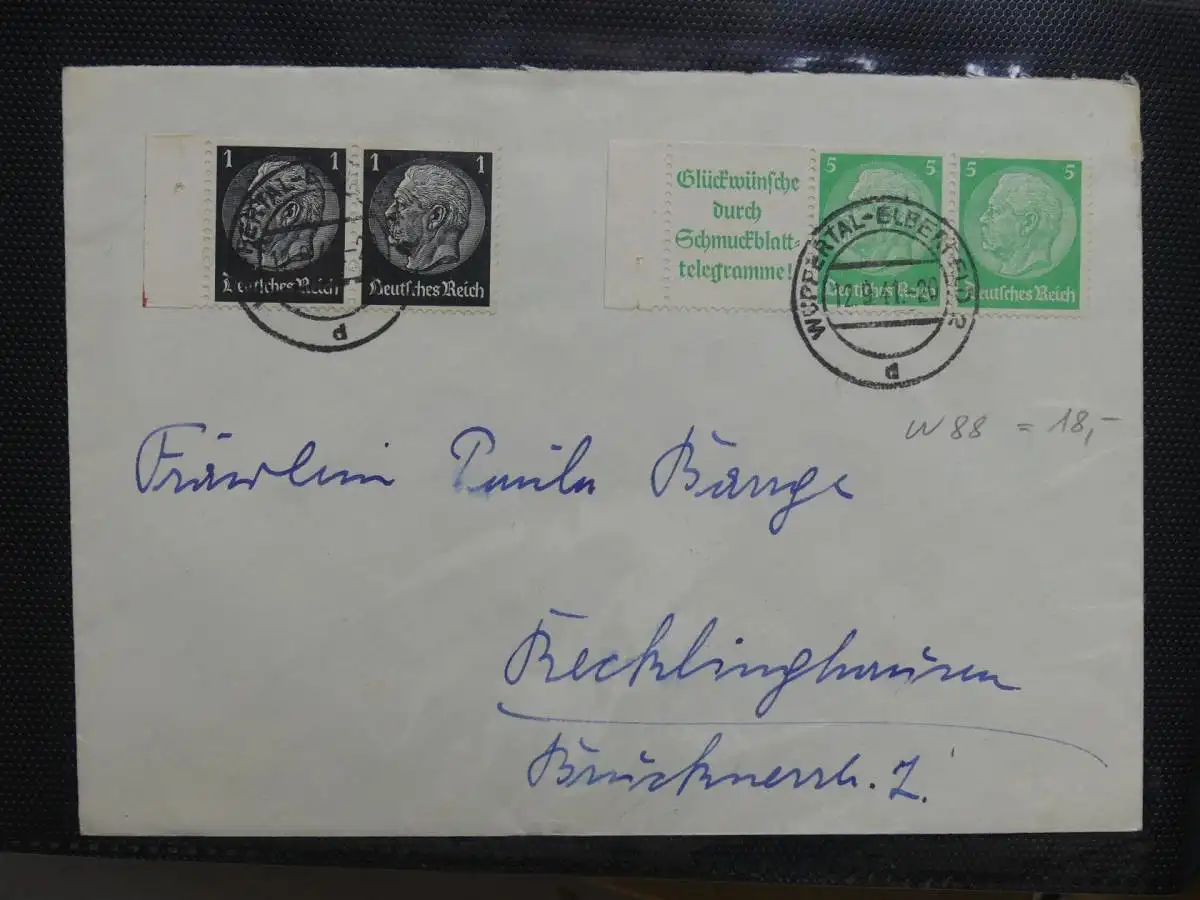 1 1
Deutsches Reich Deutsches Reich
Glückwünsche
durch
Schmuckblatt-
telegramme!
5 5 5 5
Deutsches Reich Deutsches Reich
WUPPERTAL-ELBERFELD 2
12.9.41.-20
d
d
W 88 = 18,-
Fräulein Paula Bange
Recklinghausen
Brucknerstr.